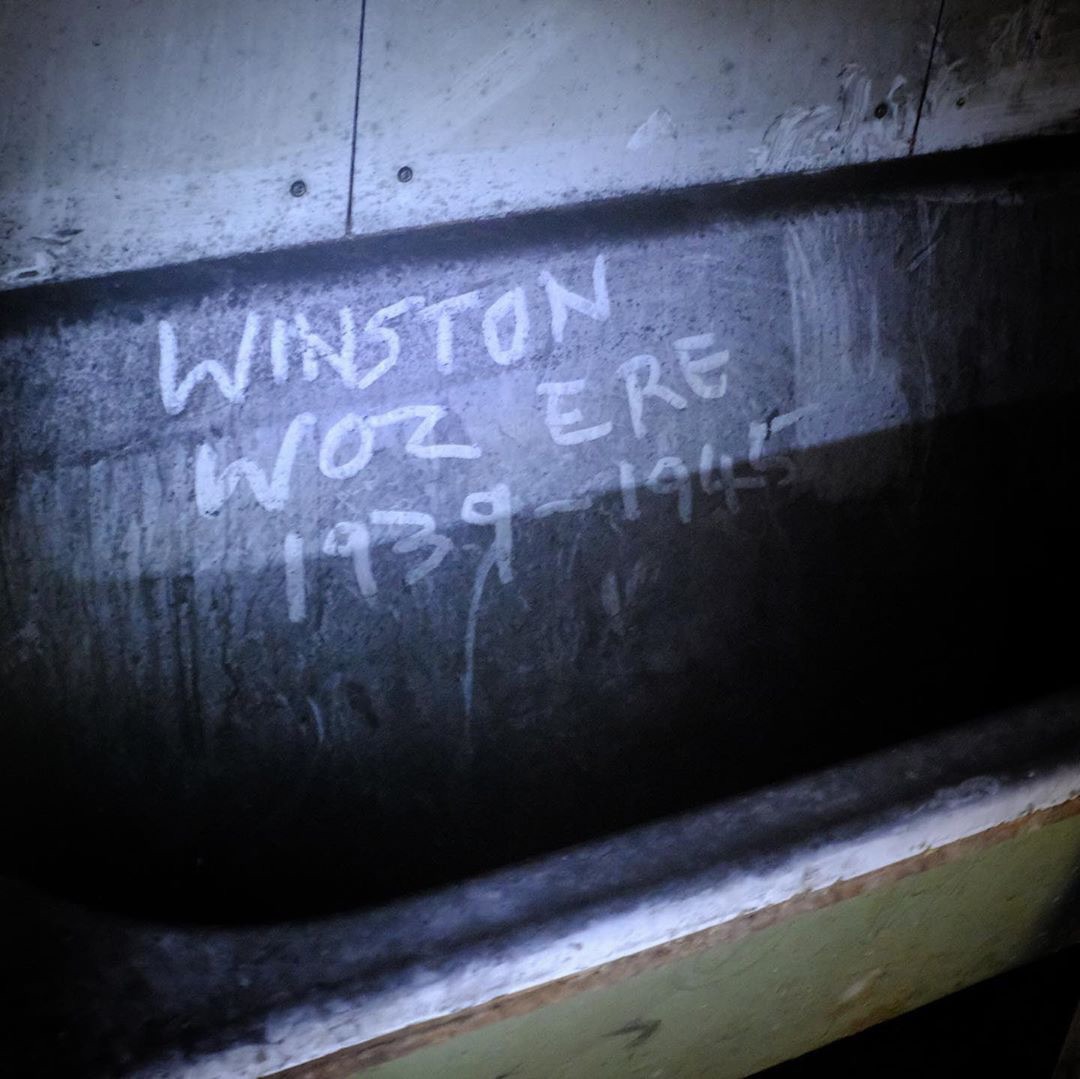 WINSTON
WOZ ERE
1939-1945